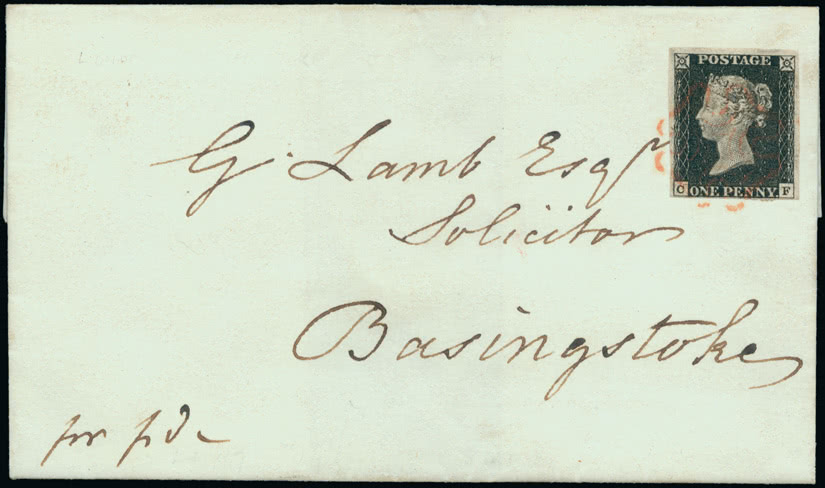 POSTAGE
ONE PENNY
C F
G. Lamb Esqr
Solicitor
Basingstoke
pr pd